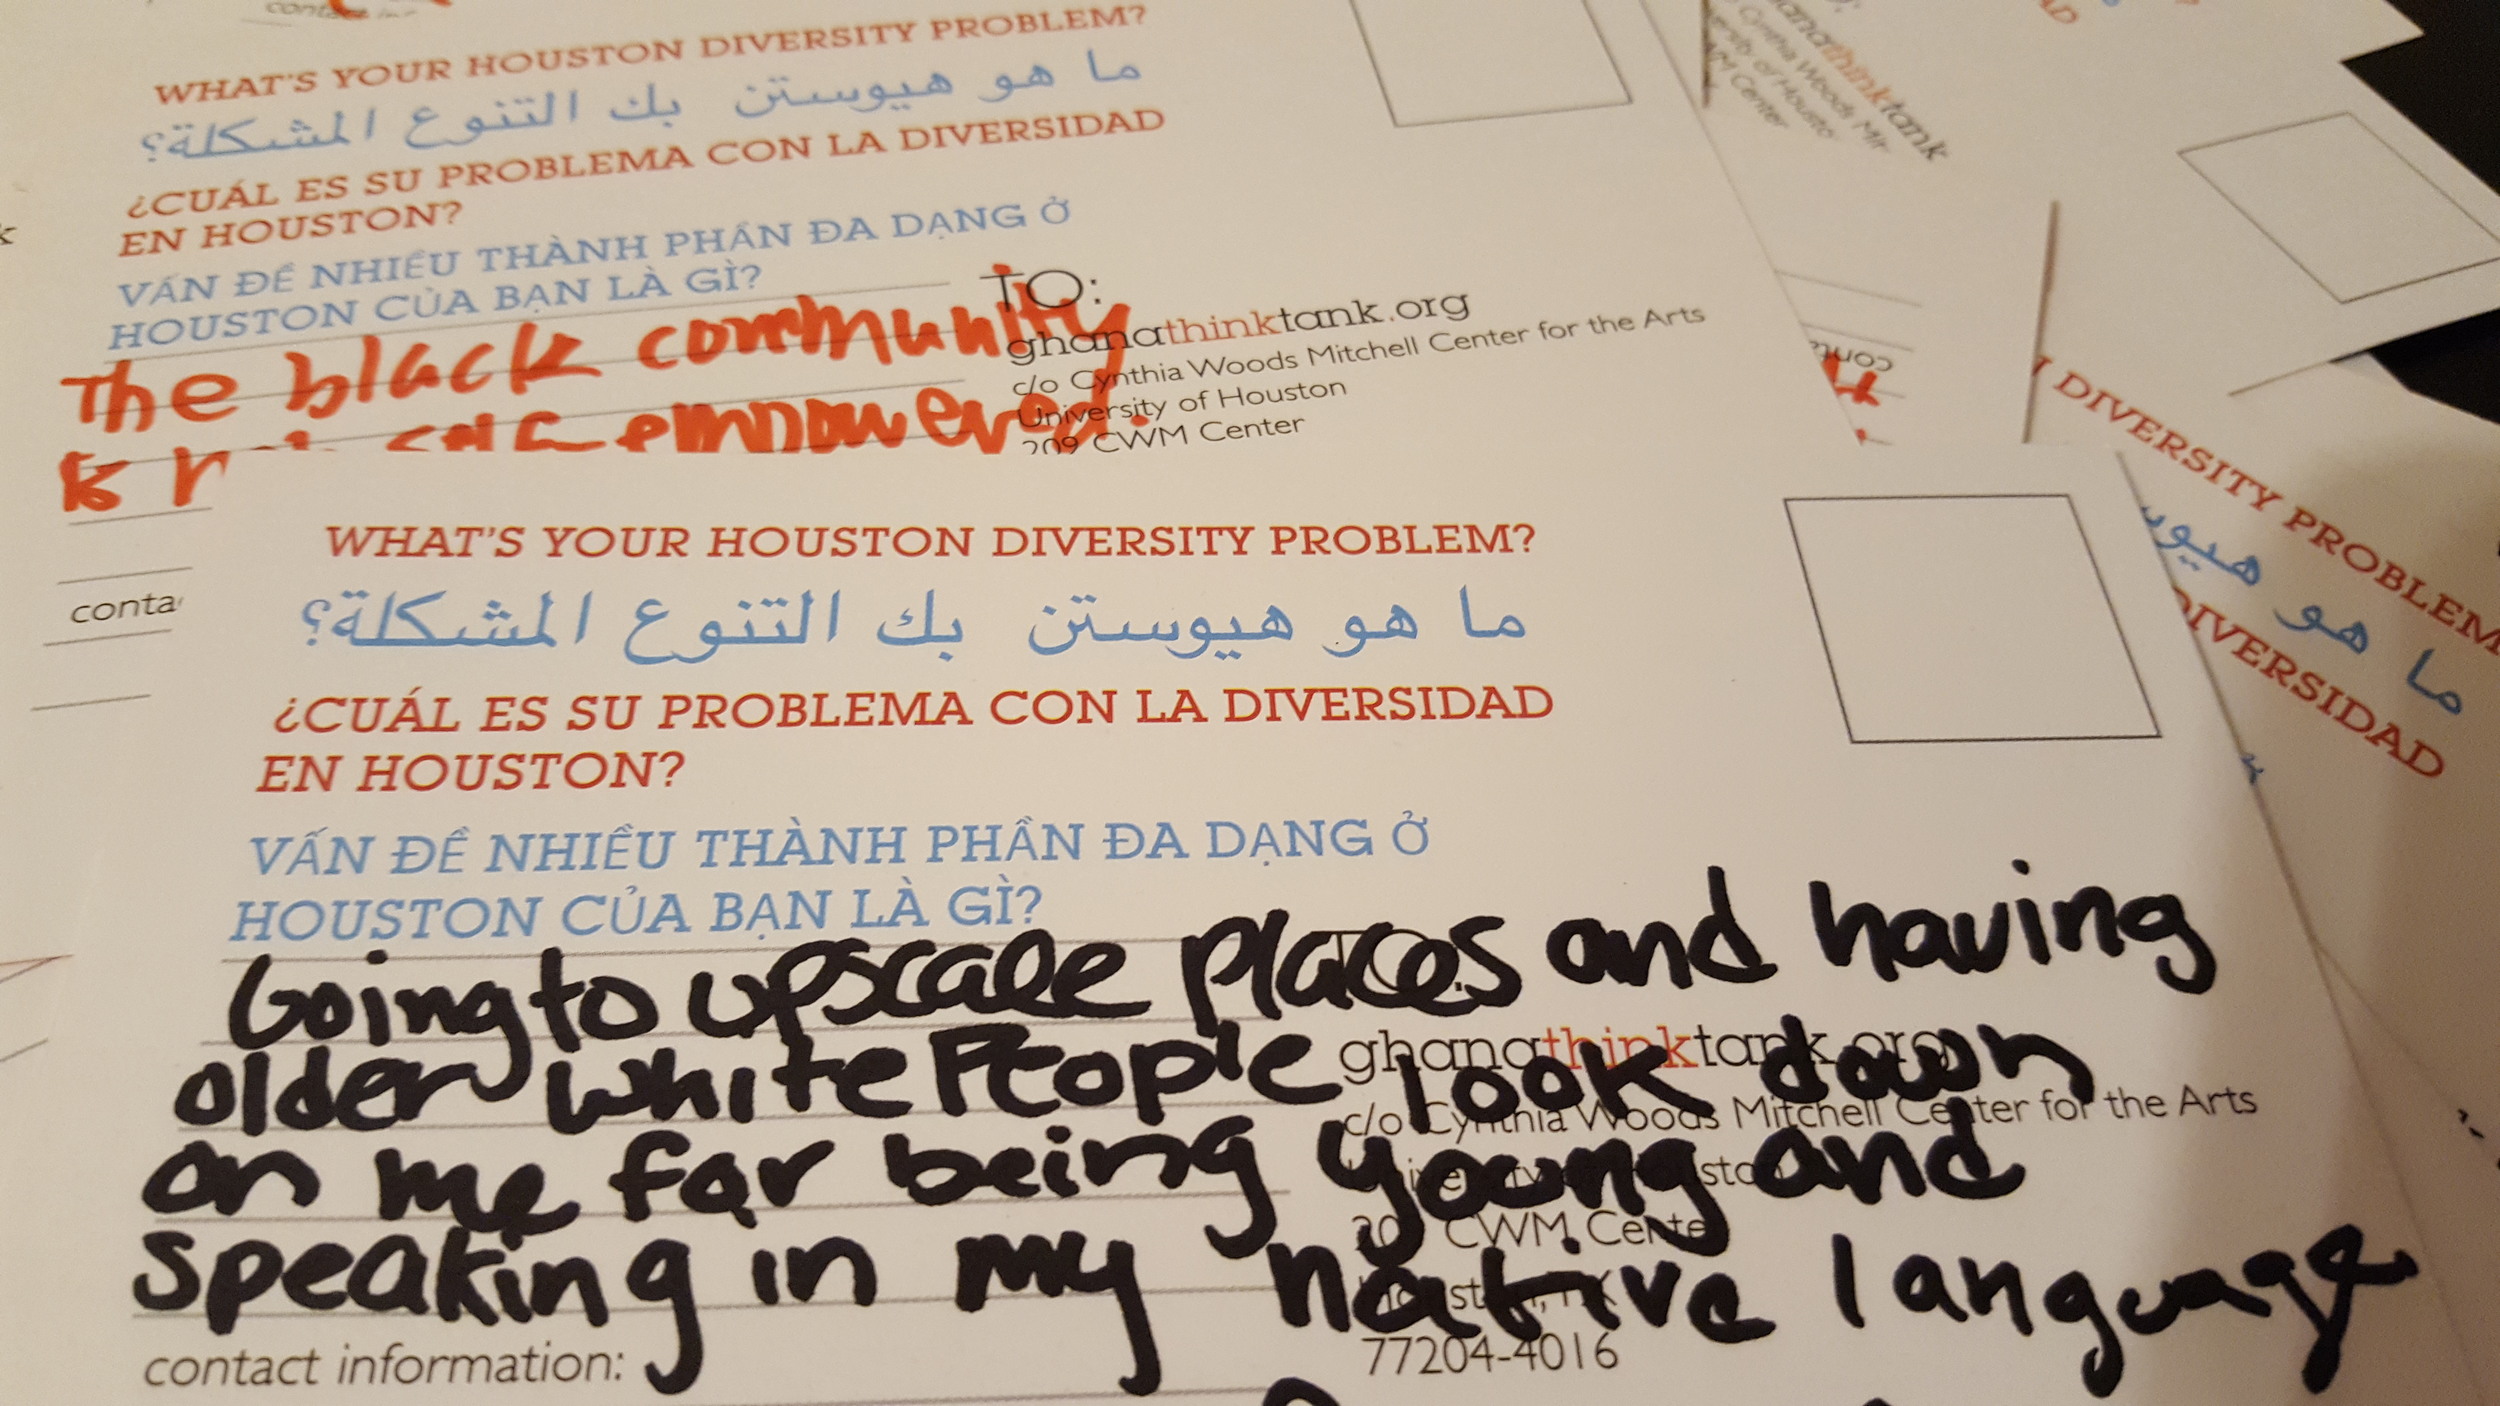 WHAT'S YOUR HOUSTON DIVERSITY PROBLEM?
ما هو هيوستن بك التنوع المشكلة؟
¿CUÁL ES SU PROBLEMA CON LA DIVERSIDAD
EN HOUSTON?
VẤN ĐỀ NHIỀU THÀNH PHẦN ĐA DẠNG Ở
HOUSTON CỦA BẠN LÀ GÌ?
The black community
empowered.
TO:
ghanathinktank.org
c/o Cynthia Woods Mitchell Center for the Arts
University of Houston
209 CWM Center
WHAT'S YOUR HOUSTON DIVERSITY PROBLEM?
ما هو هيوستن بك التنوع المشكلة؟
¿CUÁL ES SU PROBLEMA CON LA DIVERSIDAD
EN HOUSTON?
VẤN ĐỀ NHIỀU THÀNH PHẦN ĐA DẠNG Ở
HOUSTON CỦA BẠN LÀ GÌ?
Going to upscale places and having
older white People look down
on me for being young and
speaking in my native language
contact information:
ghanathinktank.org
c/o Cynthia Woods Mitchell Center for the Arts
CWM Center
77204-4016
thinktank
Cynthia Woods
Center
DIVERSITY PROBLEM
ما هو
DIVERSIDAD